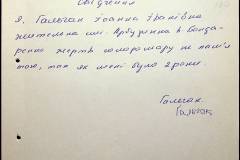 Свідчення
Я, Гальчак Ганна Іванівна
жителька смт. Арбузинка в Бонда-
ренко жертв голодомору не пам'я
таю, так як мені було 2 роки.
Гальчак.
Гальчак